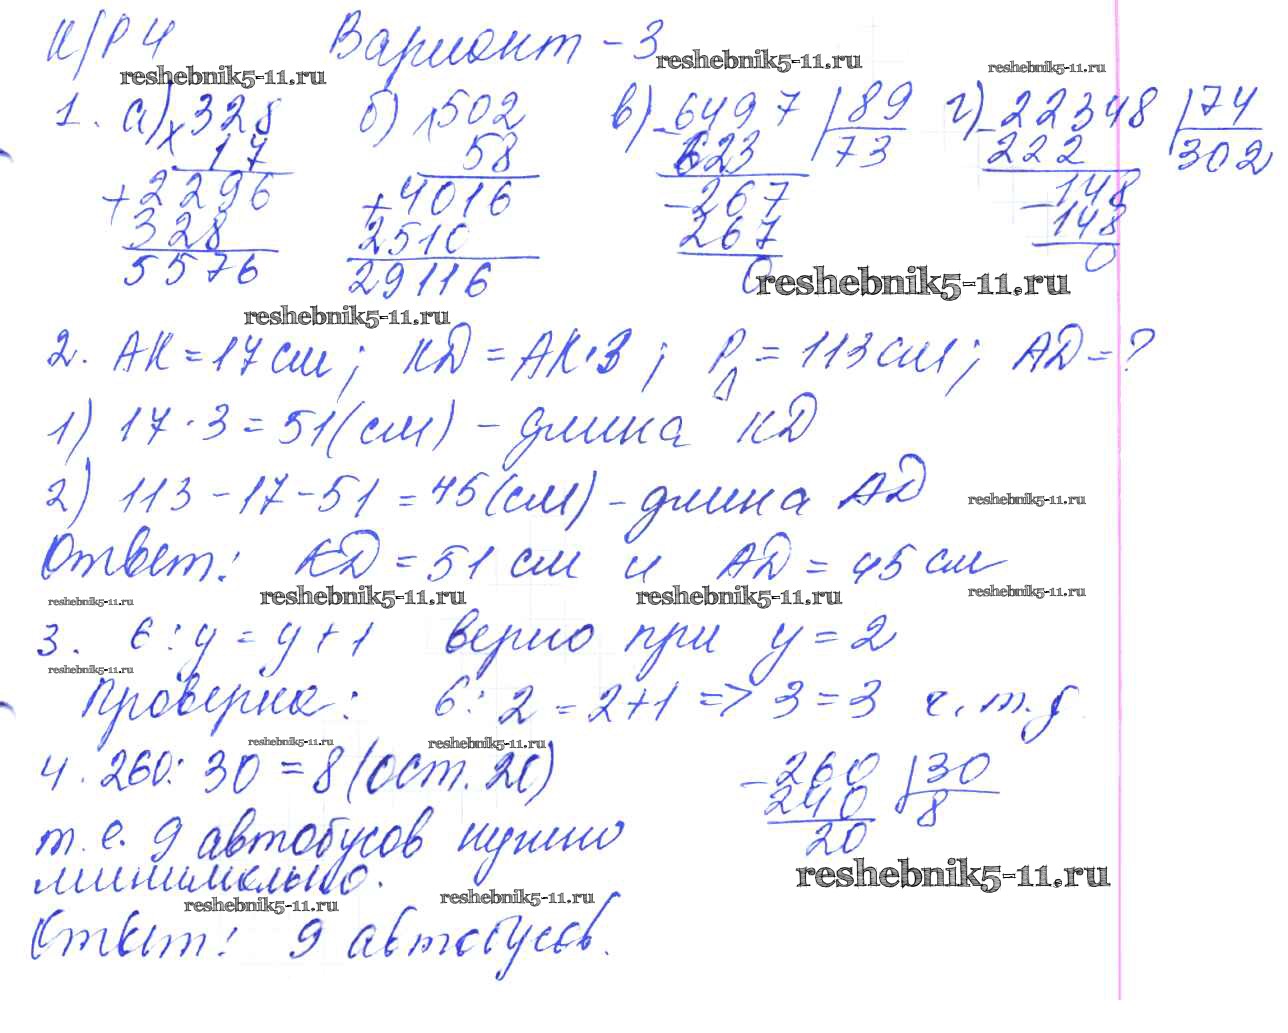 К/Р 4 Вариант - 3
reshebnik5-11.ru reshebnik5-11.ru reshebnik5-11.ru
1. а) × 328 б) × 502 в) - 6497 | 89 г) - 22348 | 74
17 58 623 73 222 302
+ 2296 + 4016 - 267 - 148
328 2510 267 148
5576 29116 0 0
reshebnik5-11.ru
reshebnik5-11.ru
2. АК = 17 см; КD = АК·3; PΔ = 113 см; АD = ?
1) 17 · 3 = 51 (см) - длина КD
2) 113 - 17 - 51 = 45 (см) - длина АD
reshebnik5-11.ru
Ответ: КD = 51 см и АD = 45 см
reshebnik5-11.ru reshebnik5-11.ru reshebnik5-11.ru reshebnik5-11.ru
3. 6 : y = y + 1 верно при y = 2
reshebnik5-11.ru
Проверка: 6 : 2 = 2 + 1 => 3 = 3 ч. т. д
reshebnik5-11.ru reshebnik5-11.ru
4. 260 : 30 = 8 (ост. 20) - 260 | 30
240 8
20
т. е. 9 автобусов нужно
минимально.
reshebnik5-11.ru
reshebnik5-11.ru reshebnik5-11.ru
Ответ: 9 автобусов.